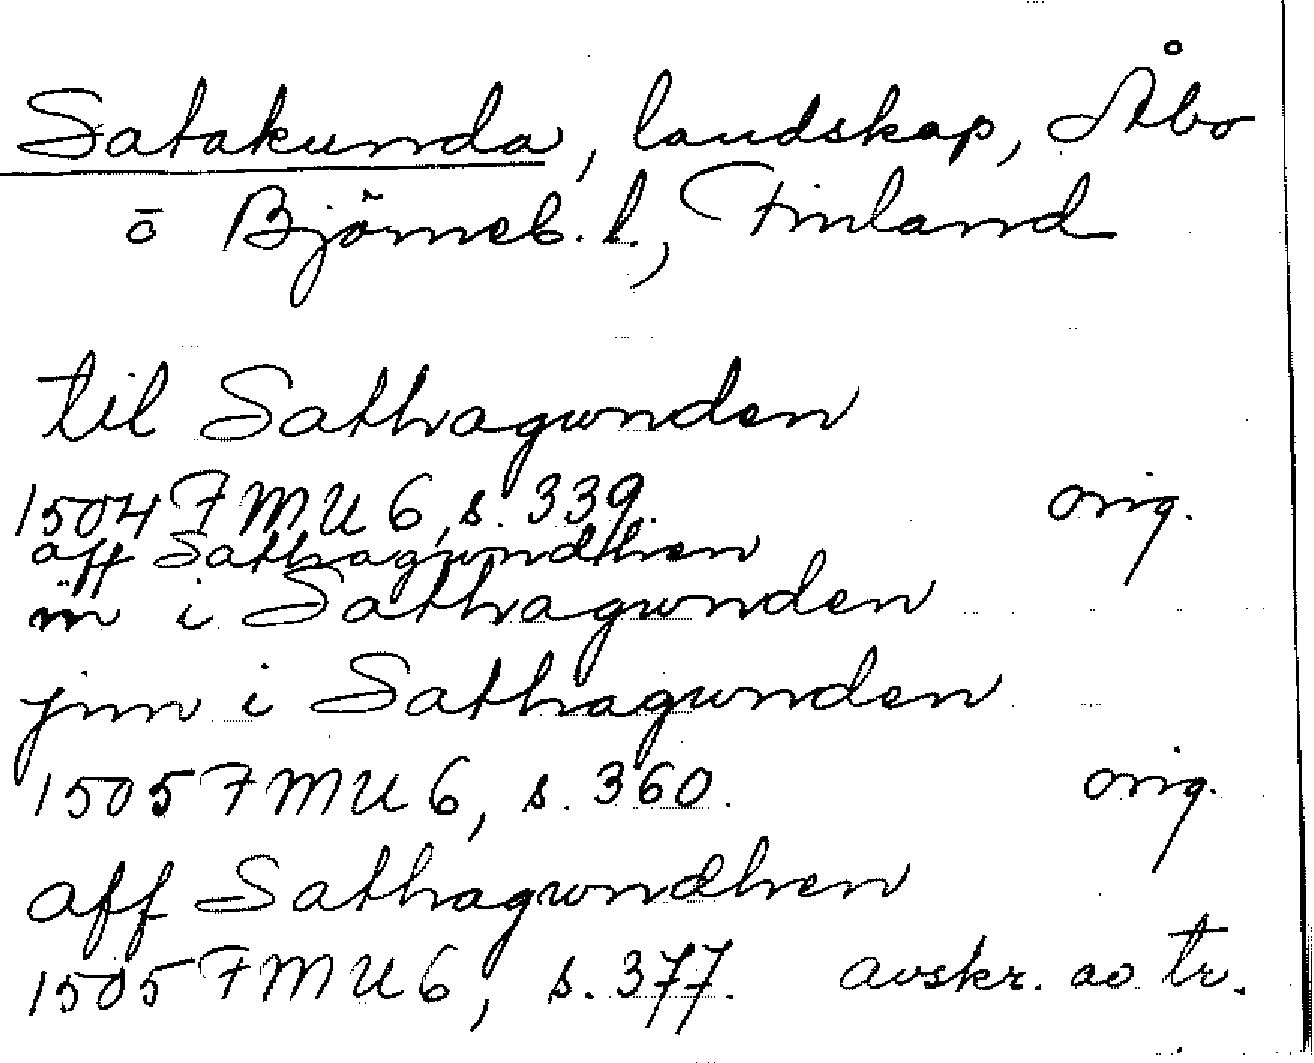 Satakunda, landskap, Åbo
o Björneb. l., Finland
til Sathagwnden
1504 FMU 6, s. 339. orig.
aff Sathagwndhen
i Sathagwnden
jnn i Sathagwnden
1505 FMU 6, s. 360. orig.
aff Sathagwndhen
1505 FMU 6, s. 377. avskr. av tr.